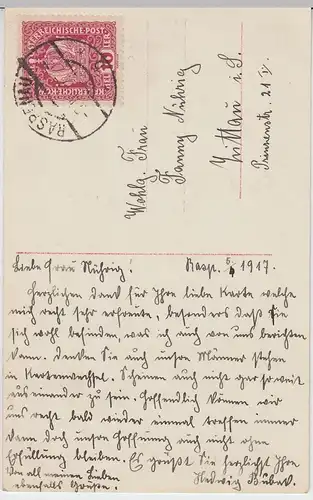 ÖSTERREICHISCHE·POST
RASPENAU
Wohlg. Frau
Fanny Nührig
Zittau i. S.
21 IV.
Liebe Frau Nührig!
Rasp. 5/4 1917.
Herzlichen Dank für Ihre liebe Karte welche
mich recht sehr erfreute, besonders daß Sie
sich wohl befinden, was ich auch von uns berichten
kann. Denken Sie auch unsre Männer stehen
in Kartenwechsel. Scheinen auch nicht gar so weit
auseinander zu sein. Hoffendlich können wir
uns recht bald wieder einmal treffen immer
dann doch unsre Hoffnung auch nicht ohne
Erfüllung bleiben. Es grüßt Sie herzlichst Ihre
Von all meinen Lieben
ebenfalls Grüße.
Hedwig